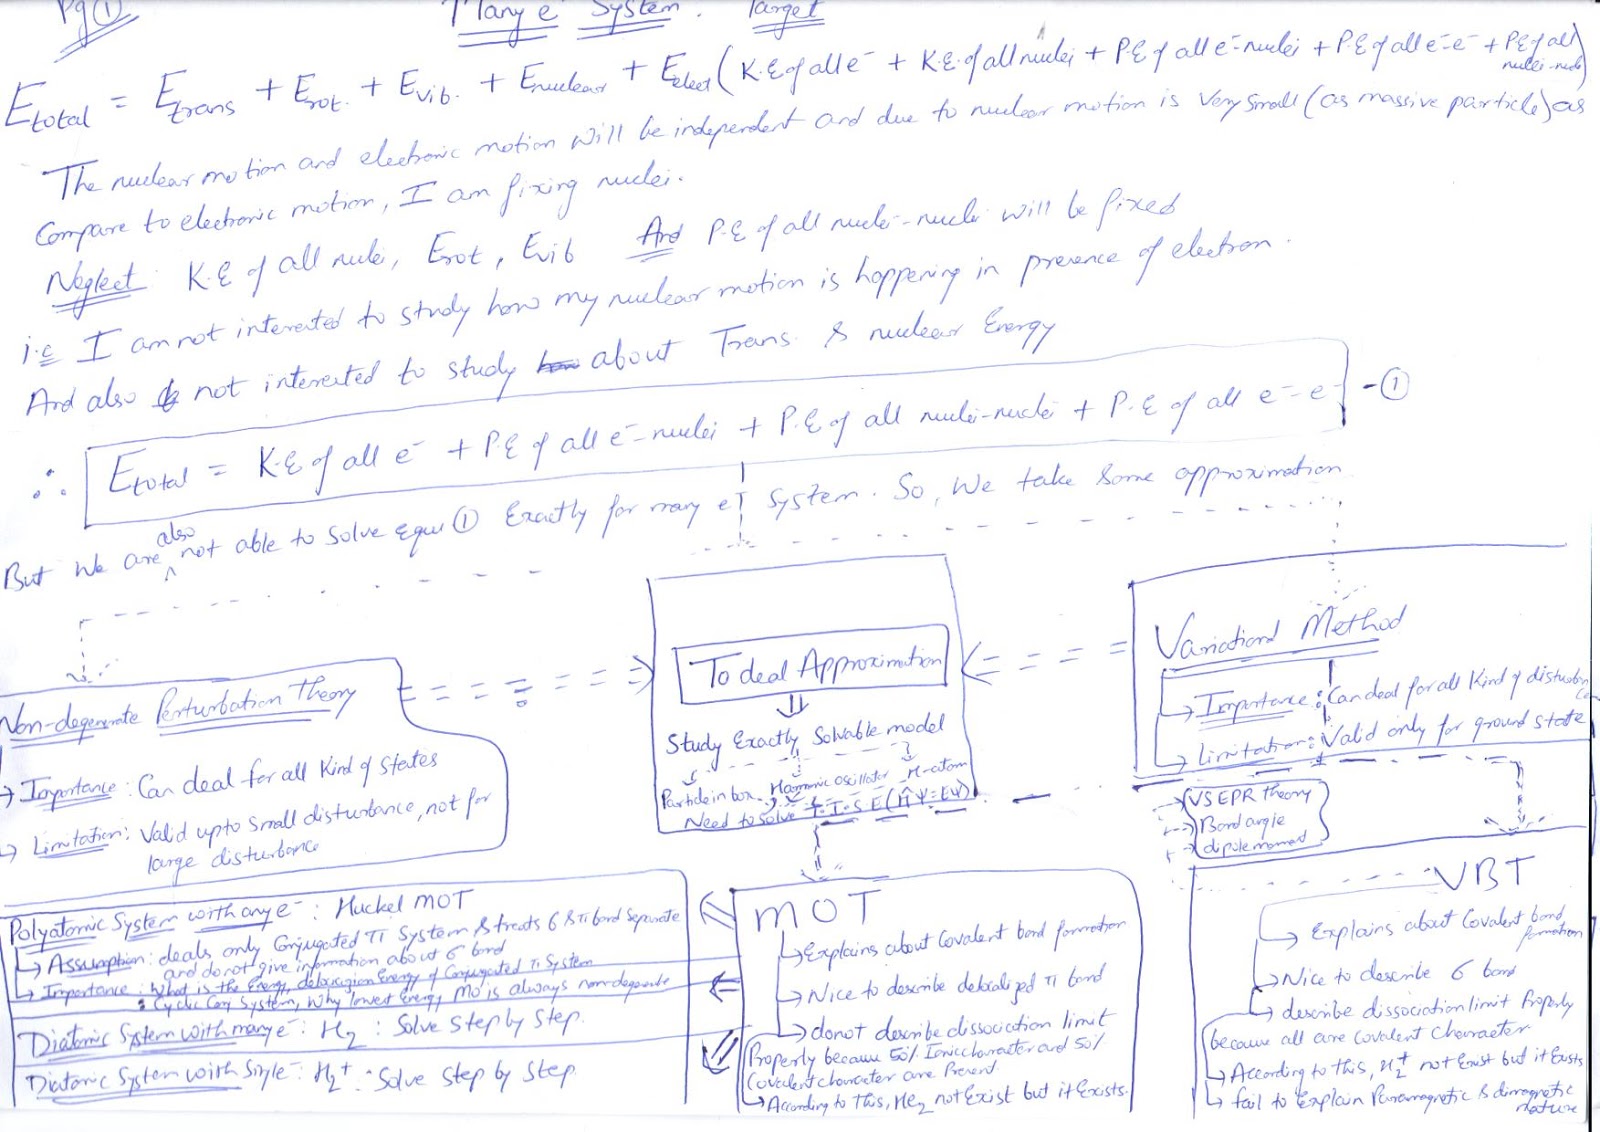 Pg ①
Many e⁻ System. Target
E_total = E_trans + E_rot. + E_vib. + E_nuclear + E_elect (K.E of all e⁻ + K.E. of all nuclei + P.E of all e⁻-nuclei + P.E of all e⁻-e⁻ + P.E of all nuclei-nuclei)
The nuclear motion and electronic motion will be independent and due to nuclear motion is very small (as massive particle) as
Compare to electronic motion, I am fixing nuclei.
Neglect: K.E of all nuclei, E_rot, E_vib And P.E of all nuclei-nuclei will be fixed
i.e I am not interested to study how my nuclear motion is happening in presence of electron.
And also not interested to study about Trans. & nuclear Energy
∴ E_total = K.E of all e⁻ + P.E of all e⁻-nuclei + P.E of all nuclei-nuclei + P.E of all e⁻-e⁻ -①
But we are also not able to solve equn ① Exactly for many e⁻ System. So, We take some approximation
Non-degenerate Perturbation Theory
→ Importance: Can deal for all Kind of states
→ Limitation: Valid upto small disturbance, not for
large disturbance
To deal Approximation
⇓
Study Exactly Solvable model
Particle in box, Harmonic oscillator, H-atom
Need to solve T.I.S.E (ĤΨ=EΨ)
Variational Method
→ Importance: Can deal for all kind of disturban
ce
→ Limitation: Valid only for ground state
→ VSEPR theory
→ Bond angle
→ dipole moment
Polyatomic System with any e⁻: Huckel MOT
→ Assumption: deals only Conjugated π System & treats σ & π bond separate
and do not give information about σ bond
→ Importance: What is the Energy, delocalization Energy of Conjugated π System
: Cyclic Conj System, Why lowest Energy MO is always non-degenerate
Diatomic System with many e⁻: H₂ : Solve step by step.
Diatomic System with Single⁻: H₂⁺: Solve step by step
MOT
→ Explains about Covalent bond formation
→ Nice to describe delocalized π bond
→ donot describe dissociation limit
Properly because 50% Ionic character and 50%
Covalent character are Present
→ According to this, He₂ not Exist but it Exists.
VBT
→ Explains about Covalent bond
formation
→ Nice to describe σ bond
→ describe dissociation limit Properly
because all are covalent character
→ According to this, H₂⁺ not Exist but it Exists
→ fail to Explain Paramagnetic & dimagnetic
nature